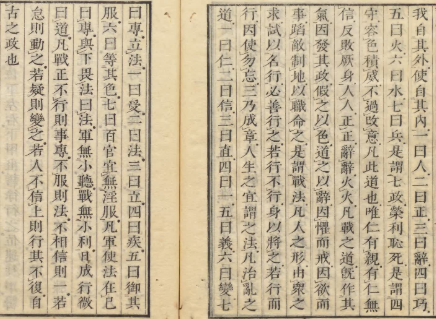 我自其外使自其內一曰人二曰正三曰辭四曰巧
五曰火六曰水七曰兵是謂七政榮利恥死是謂四
守容色積威不過改意凡此道也唯仁有親有仁無
信反敗厥身人人正正辭辭火火凡戰之道旣作其
氣因發其政假之以色道之以辭因懼而戒因欲而
事蹈敵制地以職命之是謂戰法凡人之形由衆之
求試以名行必善行之若行不行身以將之若行而
行因使勿忘三乃成章人生之宜謂之法凡治亂之
道一曰仁二曰信三曰直四曰一五曰義六曰變七
曰專立法一曰受二曰法三曰立四曰疾五曰御其
服六曰等其色七曰百官宜無淫服凡軍使法在己
曰專與下畏法曰法軍無小聽戰無小利日成行微
曰道凡戰正不行則事專不服則法不相信則一若
怠則動之若疑則變之若人不信上則行其不復自
古之政也